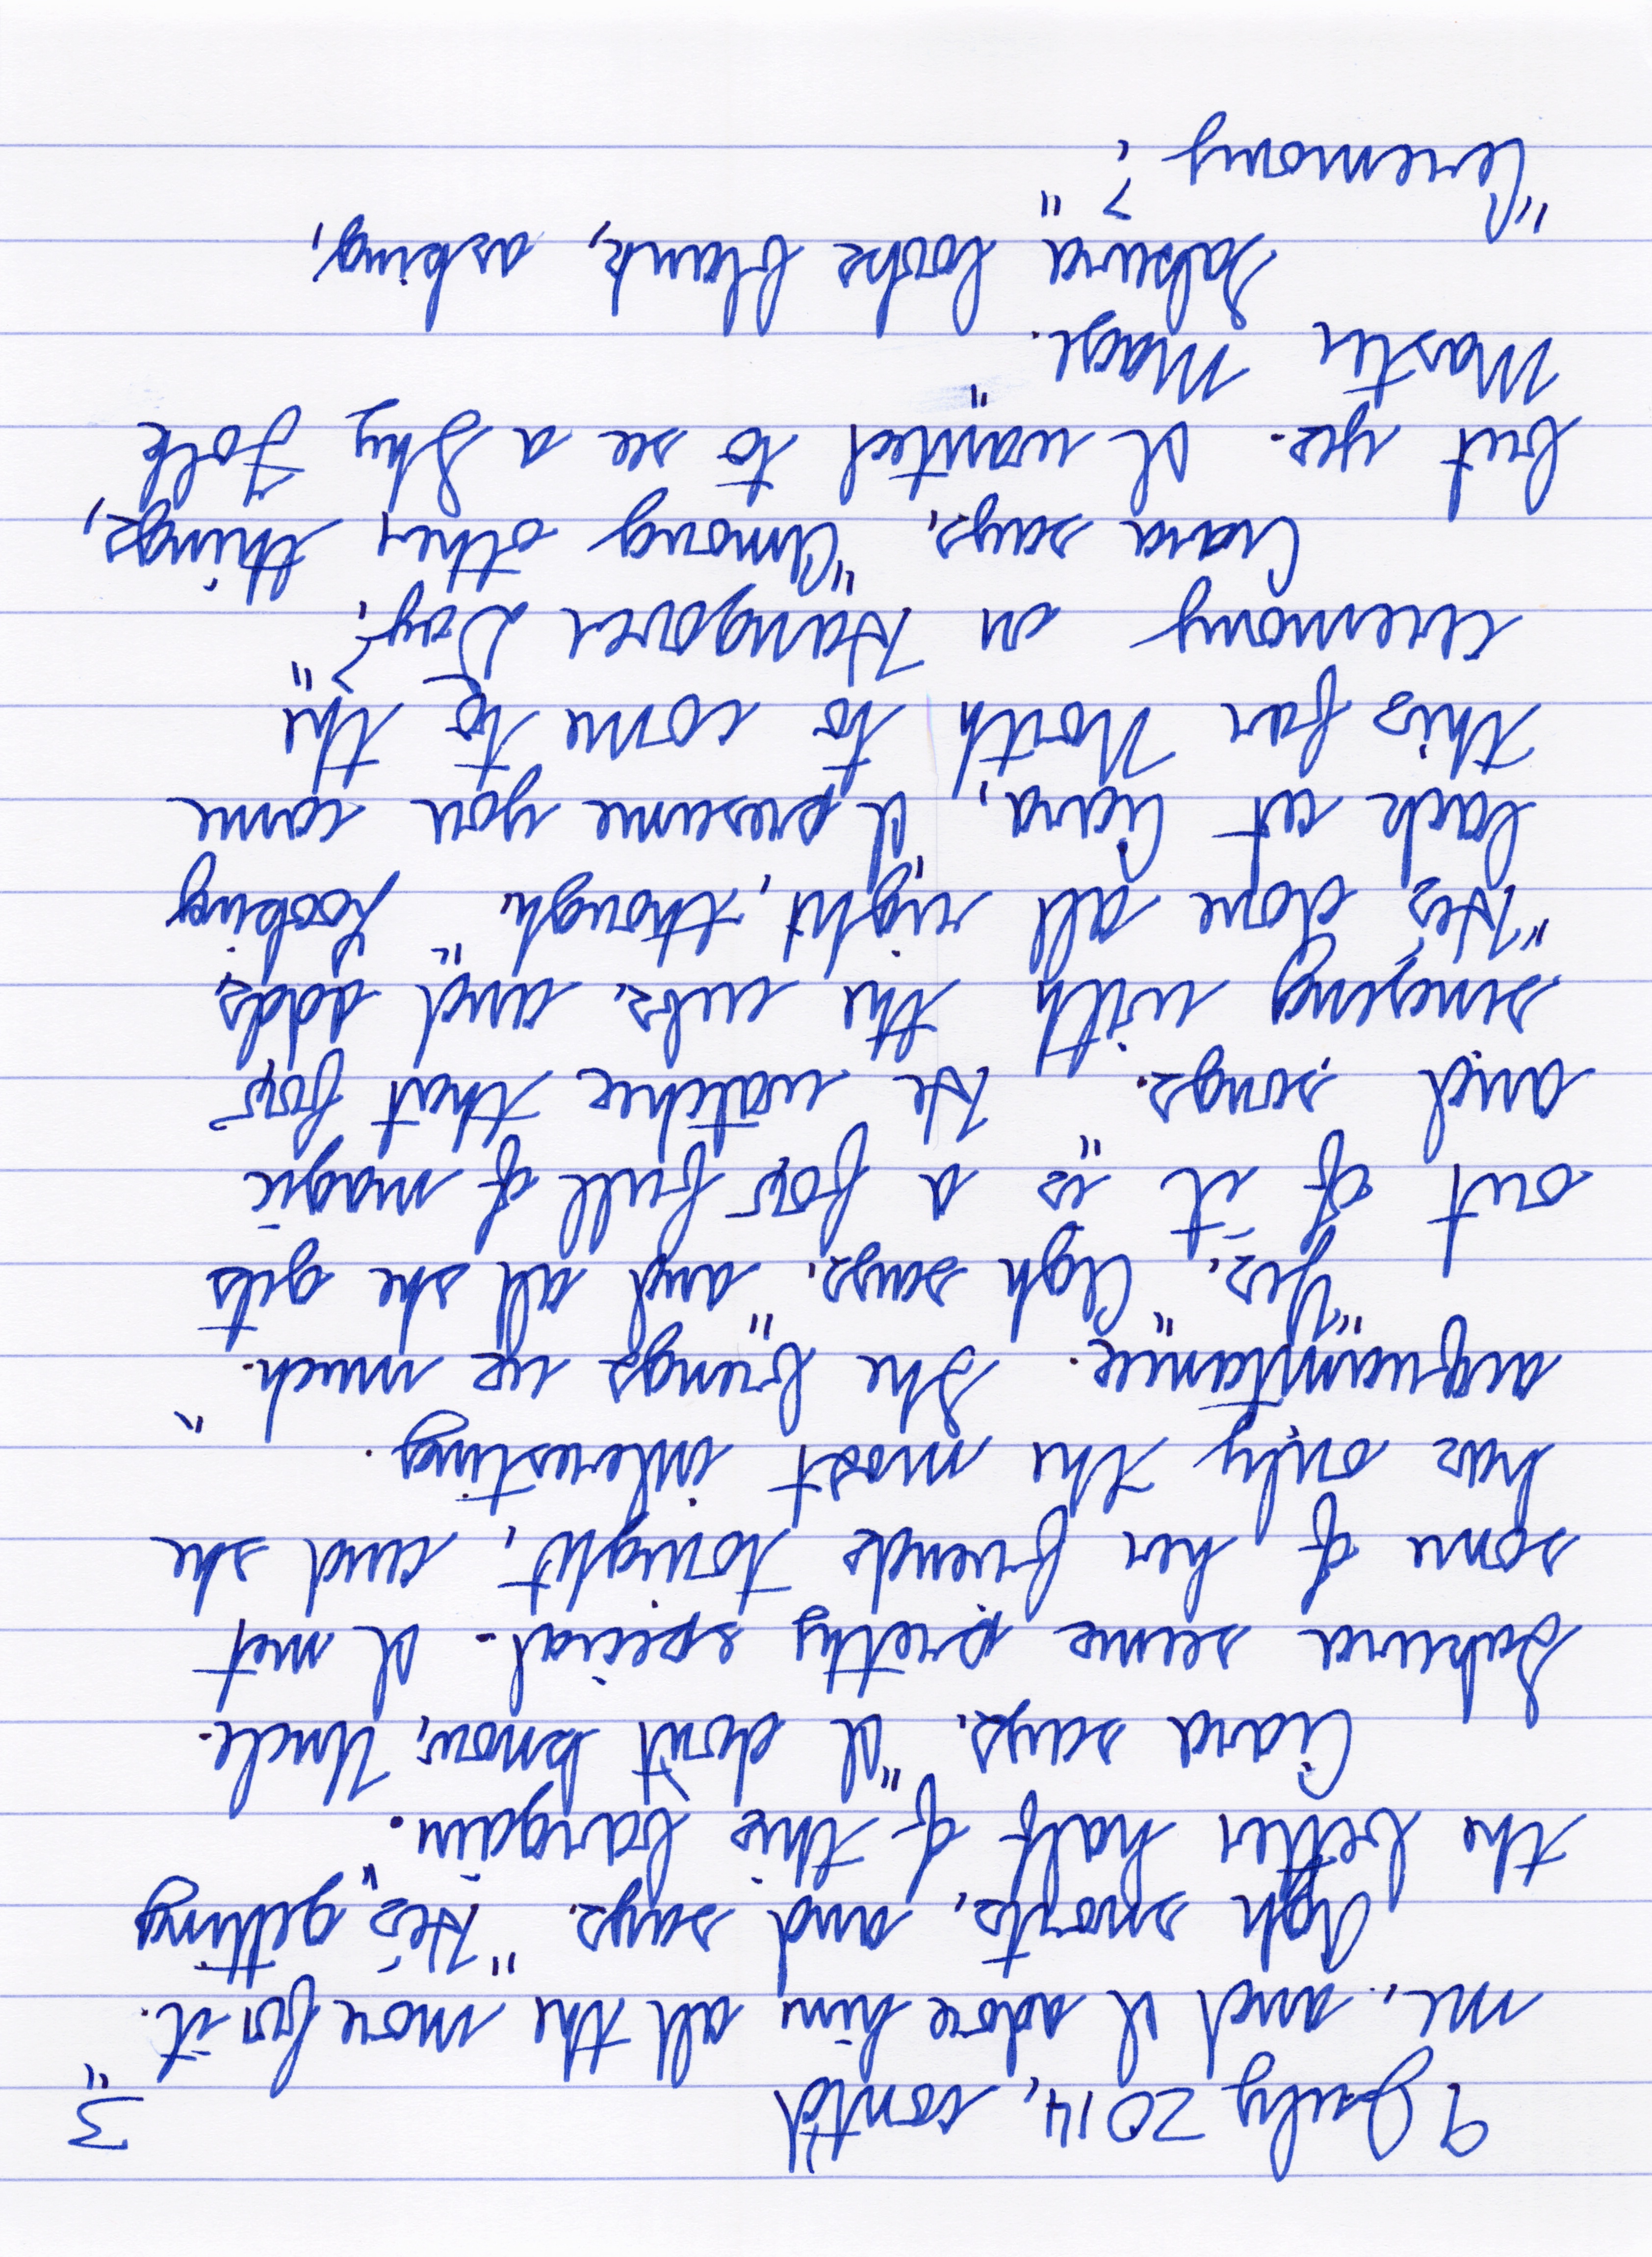 9 July 2014, cont'd 3
me, and I adore him all the more for it."
Agh snorts, and says, "He's getting
the better half of this bargain."
Ciara says, "I don't know, Uncle.
Sakura seems pretty special. I met
some of her friends tonight, and she
has only the most interesting
acquaintance. She brings us much."
"Yes," Agh says, "and all she gets
out of it is a fox full of magic
and songs." He watches that fox
singing with the cubs, and adds,
"He's done all right, though." Looking
back at Ciara, "I presume you came
this far North to come to the
ceremony on Hangover Day?"
Ciara says, "Among other things,
but yes. I wanted to see a Shy Folk
Master Mage."
Sakura looks blank, asking,
"Ceremony?"